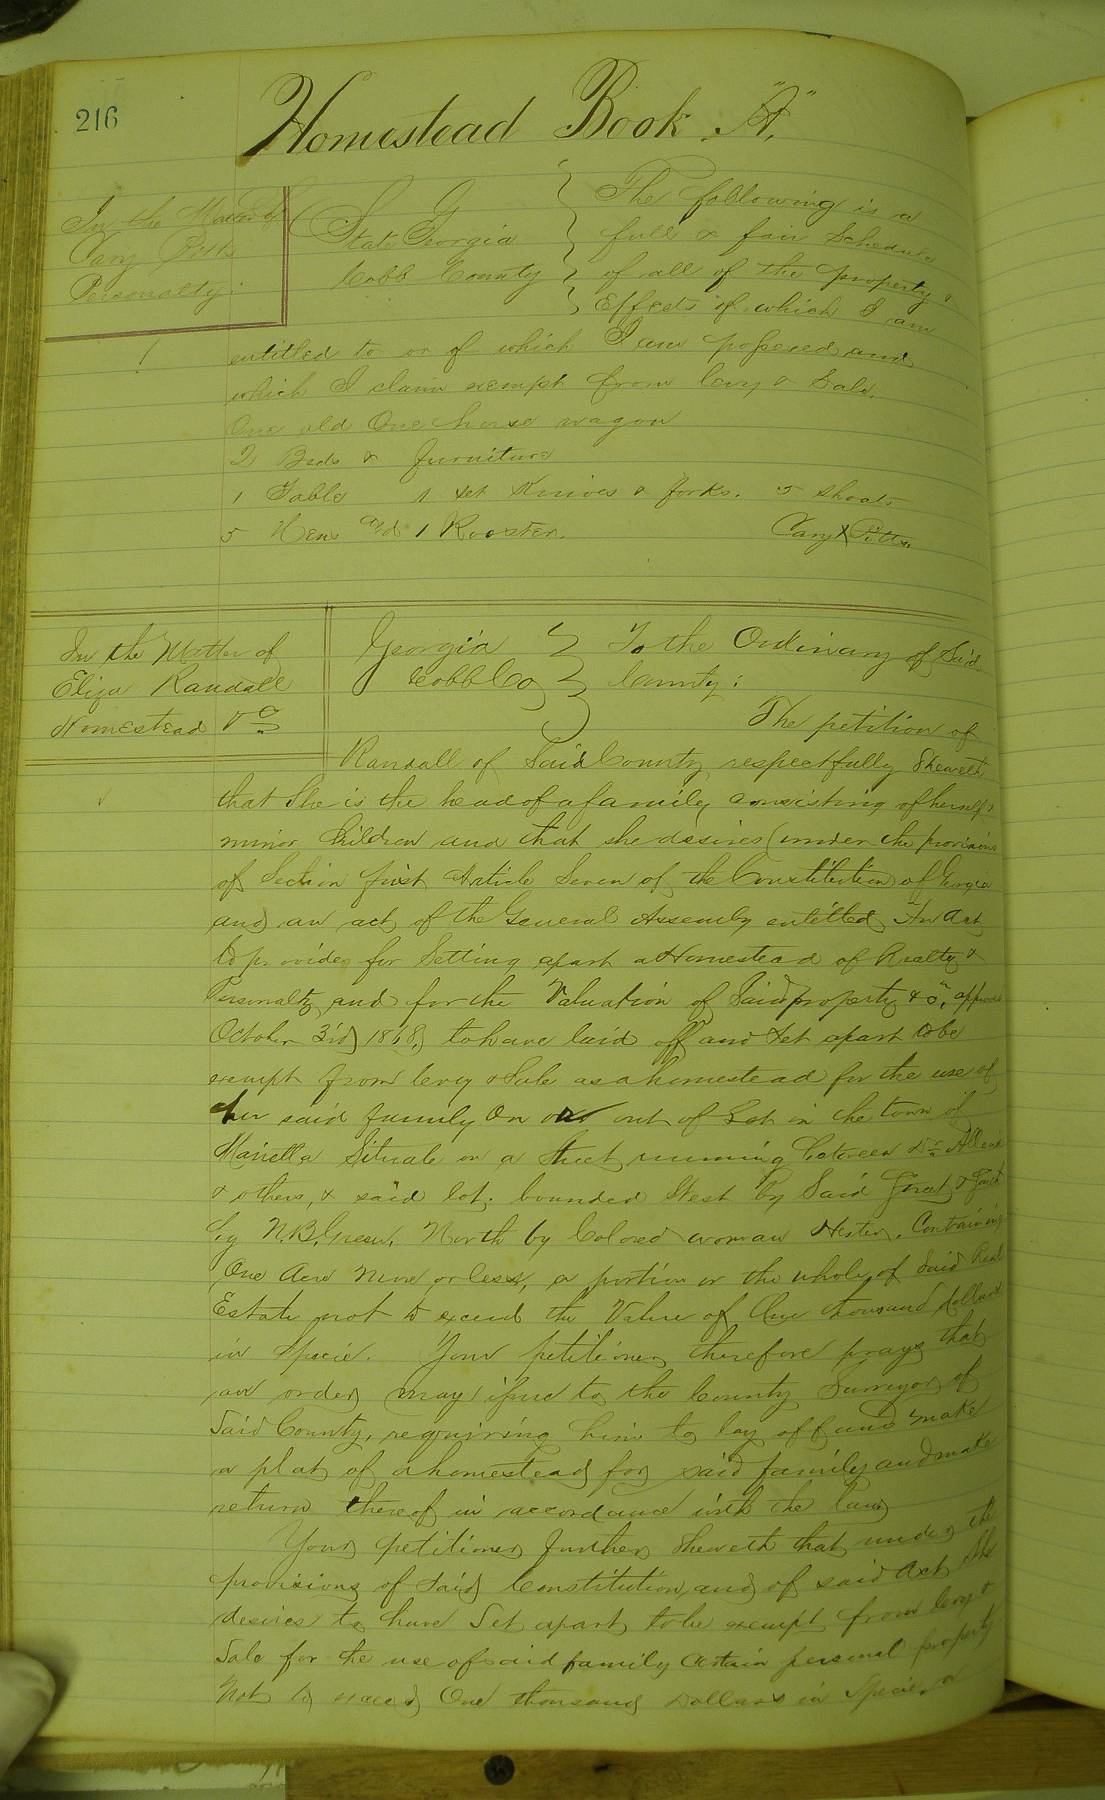 216
Homestead Book "A."
In the Matter of
Cary Pitts
Personalty.
State Georgia
Cobb County
The following is a
full & fair Schedule
of all of the property &
Effects of which I am
entitled to or of which I am possesed and
which I claim exempt from levy & Sale.
One old One horse wagon
2 Beds & furniture
1 Table 1 set Knives & forks. 5 Shoats
5 Hens and 1 Rooster. Cary X Pitts.
In the Matter of
Eliza Randall
Homestead &c.
Georgia
Cobb Co
To the Ordinary of Said
County:
The petition of
Randall of Said County respectfully Sheweth
that She is the head of a family, consisting of herself &
minor Children and that she desires (under the provisions
of Section first Article Seven of the Constitution of Georgia
and an act of the General Assembly entitled An Act
to provide for Setting apart a Homestead of Realty &
Personalty and for the Valuation of Said property &c", approved
October 3rd 1868, to have laid off and set apart to be
exempt from levy & Sale as a homestead for the use of
her said family On or out of Lot in the town of
Marietta Situate on a Street running between Dr.
& others, & said lot, bounded West by Said Street, & South
by N.B. Green, North by Colored woman Hester, Containing
One Acre More or less, a portion or the whole of Said Real
Estate not to exceed the Value of One thousand dollars
in Specie. Your petitioner therefore prays that
an order may issue to the County Surveyor of
Said County, requiring him to lay off and make
a plat of a homestead for said family and make
return thereof in accordance with the law
Your petitioner further Sheweth that under the
provisions of Said Constitution, and of said Act She
desires to have Set apart to be exempt from levy &
Sale for the use of said family Certain personal property
Not to exceed One thousand Dollars in Specie, a